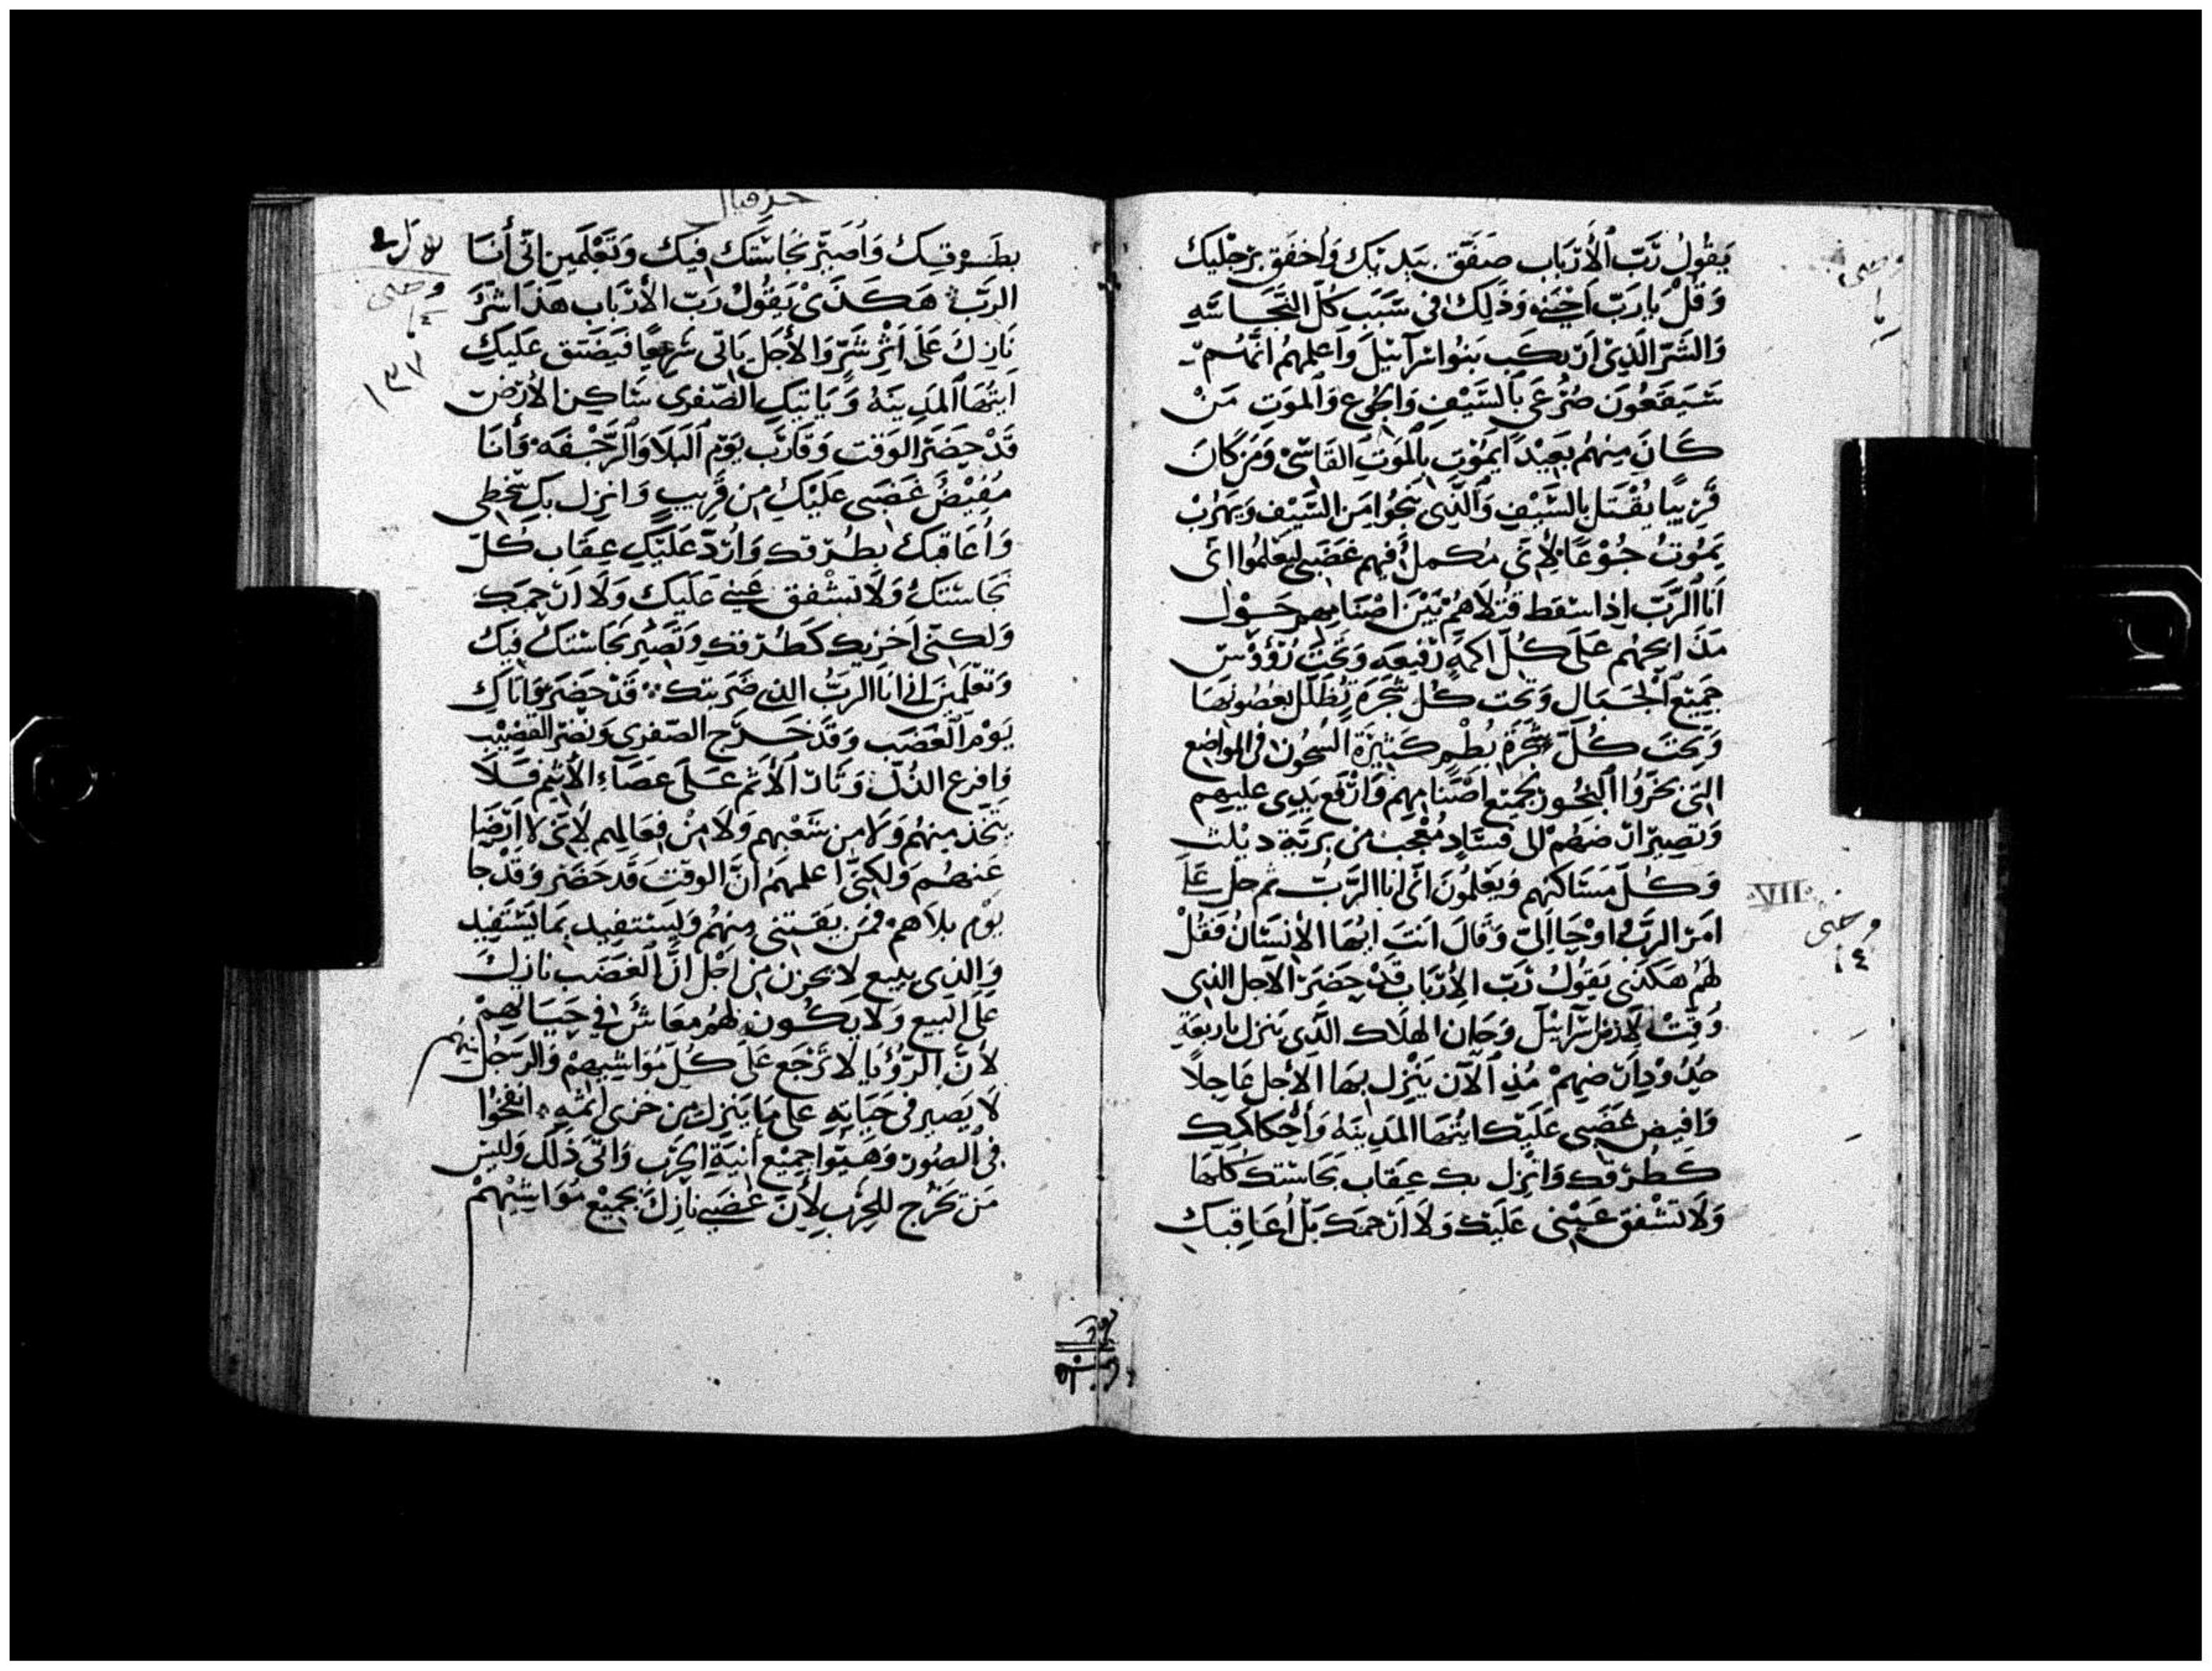 يقول رب الارباب صفق بيديك واخفق برجليك
وقل يا رب اخيه وذلك في سبب كل النجاسه
والشر الذي ارتكب بنوا اسرآئيل واعلمهم انهم
سيقعون صرعى بالسيف والجوع والموت من
كان منهم بعيدا يموت بالموت القاسي ومن كان
قريبا يقتل بالسيف والذي ينجوا من السيف ويهرب
يموت جوعا لاني مكمل فيهم غضبي ليعلموا اني
انا الرب اذا سقط قتلاهم بين اصنامهم حول
مذابحهم على كل اكمة رفيعه وتحت رؤوس
جميع الجبال وتحت كل شجرة تظلل بغصونها
وتحت كل شجرة بطم كثيرة في المواضع
التي بخروا البخور لجميع اصنامهم وارفع يدي عليهم
وتصير ارضهم الى فساد معجب من برية دبلث
وكل مساكنهم ويعلمون اني انا الرب ثم حل علي
امر الرب اوحا الي وقال انت ايها الانسان فقل
لهم هكذى يقول رب الارباب قد حضر الاجل الذي
وقت لارض اسرآئيل وحان الهلاك الذي ينزل باربعة
حدود ارضهم منذ الآن ينزل بها الاجل عاجلا
وافيض غضبي عليك ايتها المدينه واحكاكيك
كطرقك وانزل بك عقاب نجاستك كلها
ولا تشفق عيني عليك ولا ارحمك بل اعاقبك
VII
حزقيال
١٣٧
بطرقك واصير نجاستك فيك وتعلمين اني أنا
الرب هكذى يقول رب الارباب هذا شر
نازل على اثر شر والأجل ياتي سريعا فيضيق عليك
ايتها المدينه وياتيك الصفرى ساكن الارض
قد حضر الوقت وقارب يوم البلا والرجفه وأنا
مفيض غضبي عليك من قريب وانزل بك سخطي
وأعاقبك بطرقك وأرد عليك عقاب كل
نجاستك ولا تشفق عيني عليك ولا ارحمك
ولكني اخزيك كطرقك وتصير نجاستك فيك
وتعلمين اني انا الرب الذي ضربتك قد حضر واتاك
يوم الغضب وقد خرج الصفرى ونضر القضيب
وافرع الذل وثار الاثم على عصاء الأثيم فلا
يتخذ منهم ولا من شعبهم ولا من فعالهم لاني لا ارضا
عنهم ولكني اعلمهم ان الوقت قد حضر وقد جا
يوم بلاهم فمن يقتني منهم وليستفيد بما يستفيد
والذي يبيع لا يحزن من اجل ان الغضب نازل
على البيع ولا يكون لهم معاش في حياتهم
لأن الرؤيا لا ترجع على كل مواشيهم والرجل
لا يصير في حياته على ما ينزل من خزى اثمه انفخوا
في الصور وهيوا جميع أنية الحرب واتى ذلك وليس
من يخرج للحرب لأن غضبي نازل بجميع مواشيهم